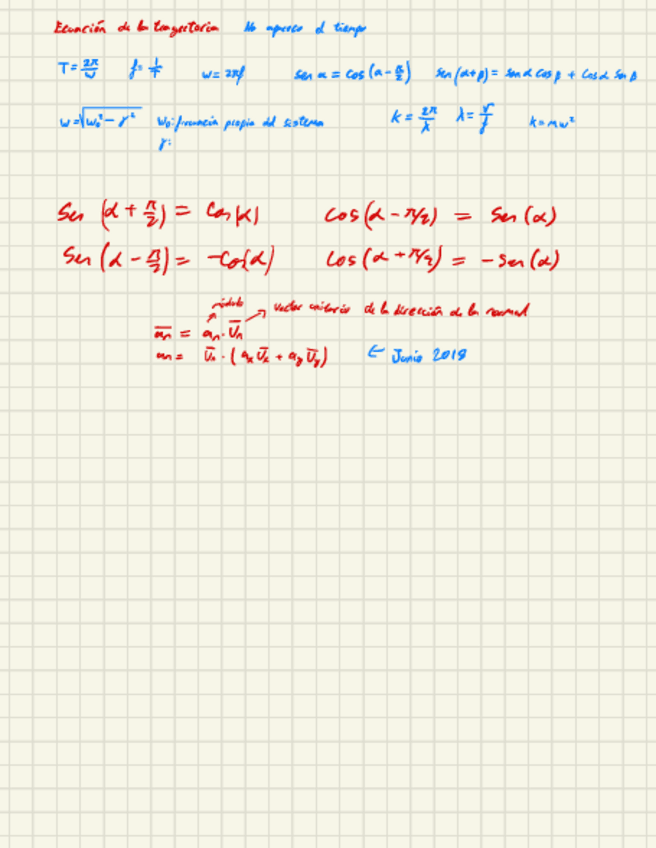 Ecuación de la trayectoria No aparece el tiempo
T = 2π/w f = 1/T w = 2πf sen α = cos(α - π/2) sen(α+β) = senα cosβ + cosα senβ
w = √(w₀² - γ²) w₀: frecuencia propia del sistema k = 2π/λ λ = v/f k = mw²
γ:
Sen (α + π/2) = Cos(α) cos(α - π/2) = Sen(α)
Sen(α - π/2) = -Cos(α) cos(α + π/2) = -Sen(α)
módulo vector unitario de la dirección de la normal
a̅n̅ = an · U̅n
an = U̅n · (ax U̅x + ay U̅y) ← Junio 2018